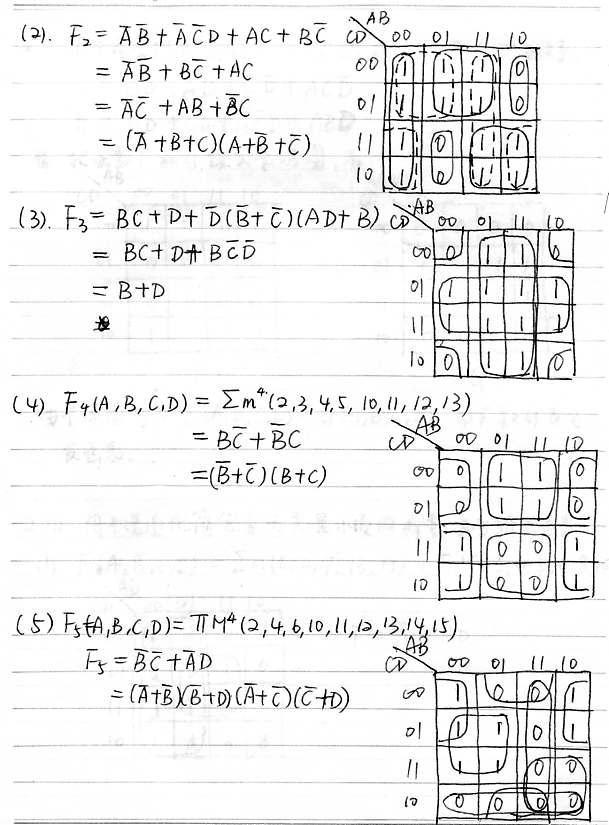 (2). F̅₂ = A̅B̅ + A̅C̅D + AC + BC̅
= A̅B̅ + BC̅ + AC
= A̅C̅ + AB + B̅C
= (A̅+B+C)(A+B̅+C̅)
AB
CD 00 01 11 10
00 1 1 1 0
01 1 1 1 0
11 1 0 1 1
10 1 0 1 1
(3). F̅₃ = BC + D + D̅(B̅+C̅)(AD+B)
= BC + D + BC̅D̅
= B+D
AB
CD 00 01 11 10
00 0 1 1 0
01 1 1 1 1
11 1 1 1 1
10 0 1 1 0
(4) F₄(A,B,C,D) = Σm⁴(2,3,4,5,10,11,12,13)
= BC̅ + B̅C
= (B̅+C̅)(B+C)
AB
CD 00 01 11 10
00 0 1 1 0
01 0 1 1 0
11 1 0 0 1
10 1 0 0 1
(5) F₅(A,B,C,D) = πM⁴(2,4,6,10,11,12,13,14,15)
F̅₅ = B̅C̅ + A̅D
= (A̅+B̅)(B̅+D)(A̅+C̅)(C̅+D)
AB
CD 00 01 11 10
00 1 0 0 1
01 1 1 0 1
11 1 1 0 0
10 0 0 0 0